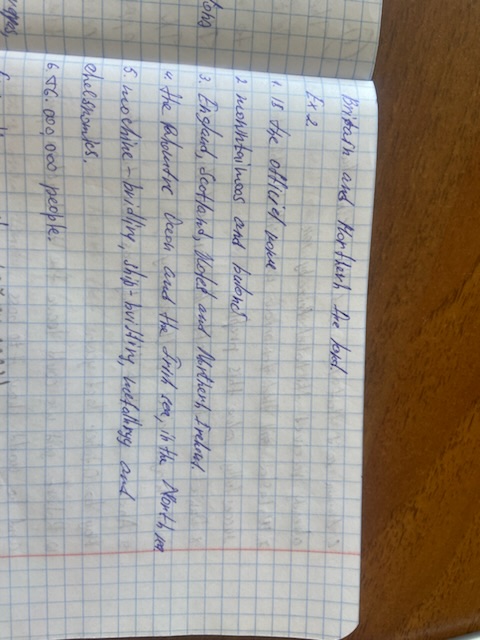 Britain and Northern Ire land
Ex 2.
1. is the official name
2 mountainoos and
3. England, Scotland, Wales and Northern Ireland.
4. the Atlantic Ocean and the Irish sea, in the North sea
5. machine-building, ship-building, metallurgy and
6. 56.000,000 people.
long